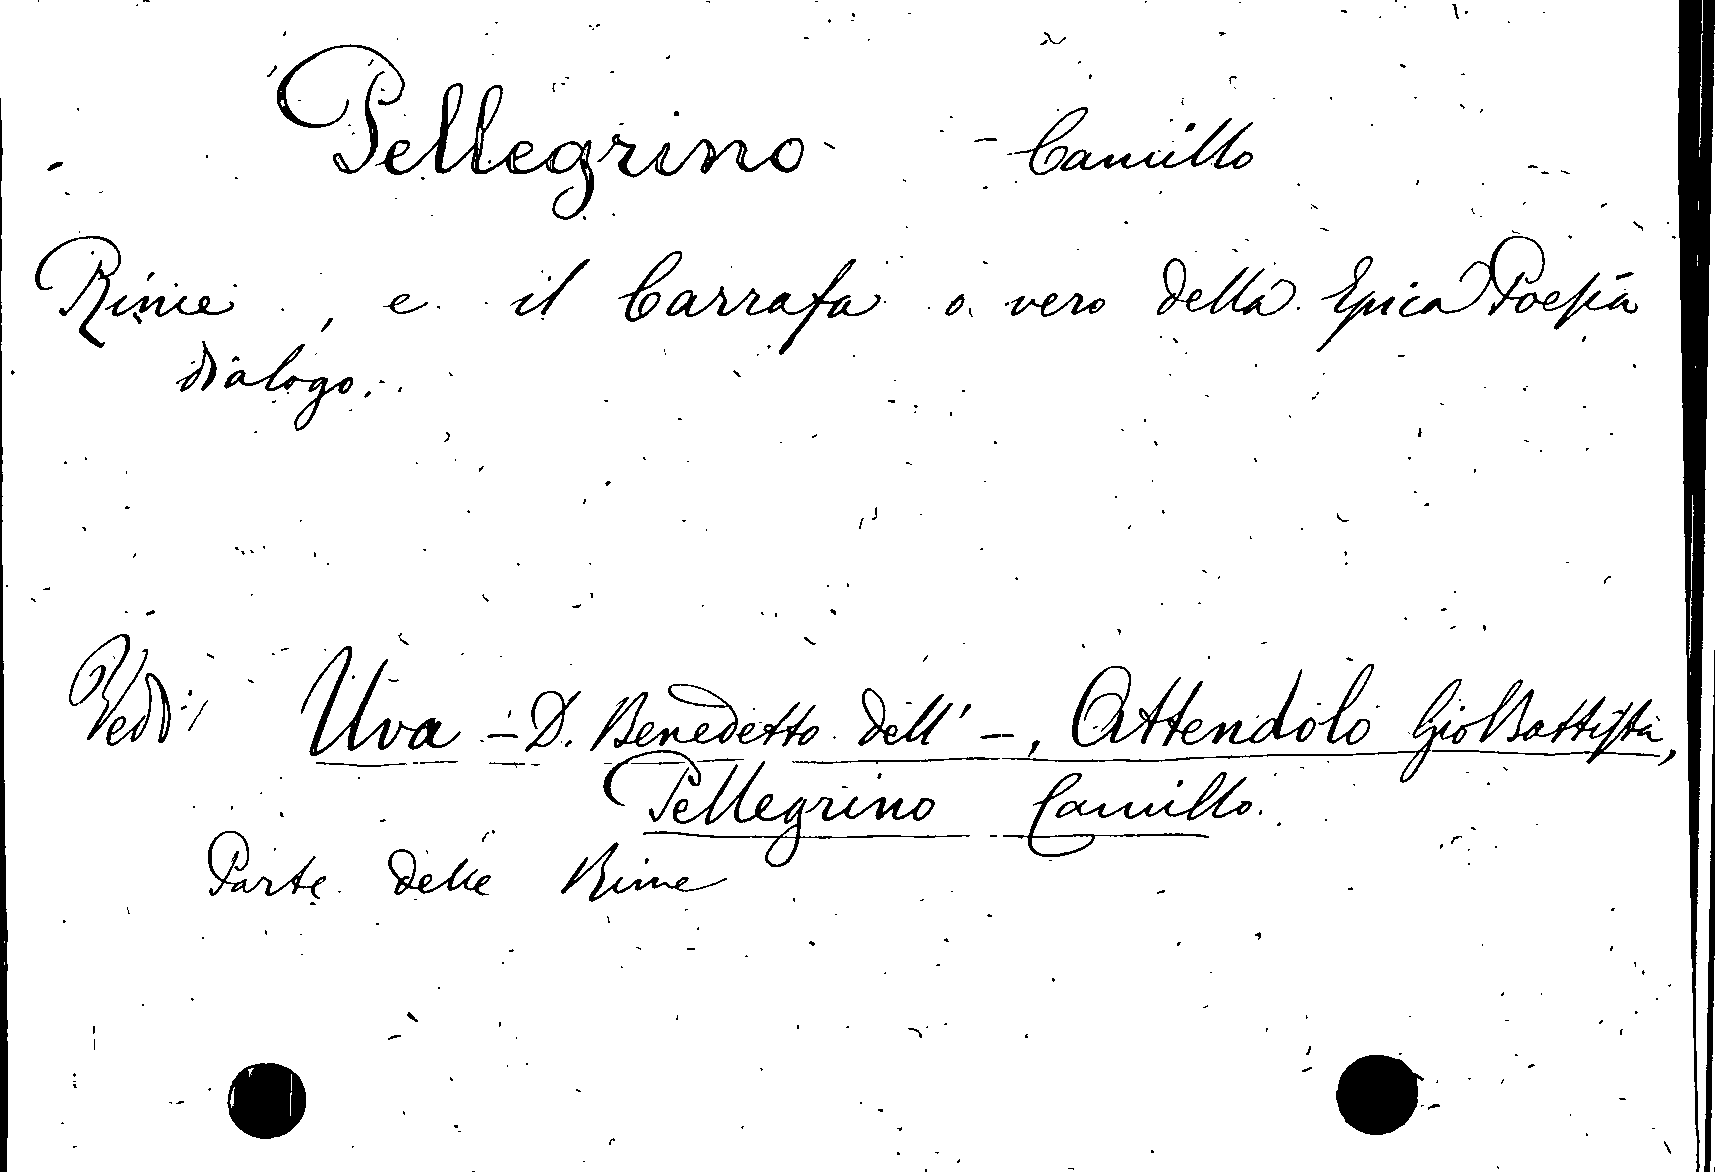 Pellegrino - Camillo
Rime, e il Carrafa o vero della Epica Poesia
dialogo.
Vedi: Uva - D. Benedetto dell' -, Attendolo Gio Battista,
Pellegrino Camillo.
Parte delle Rime